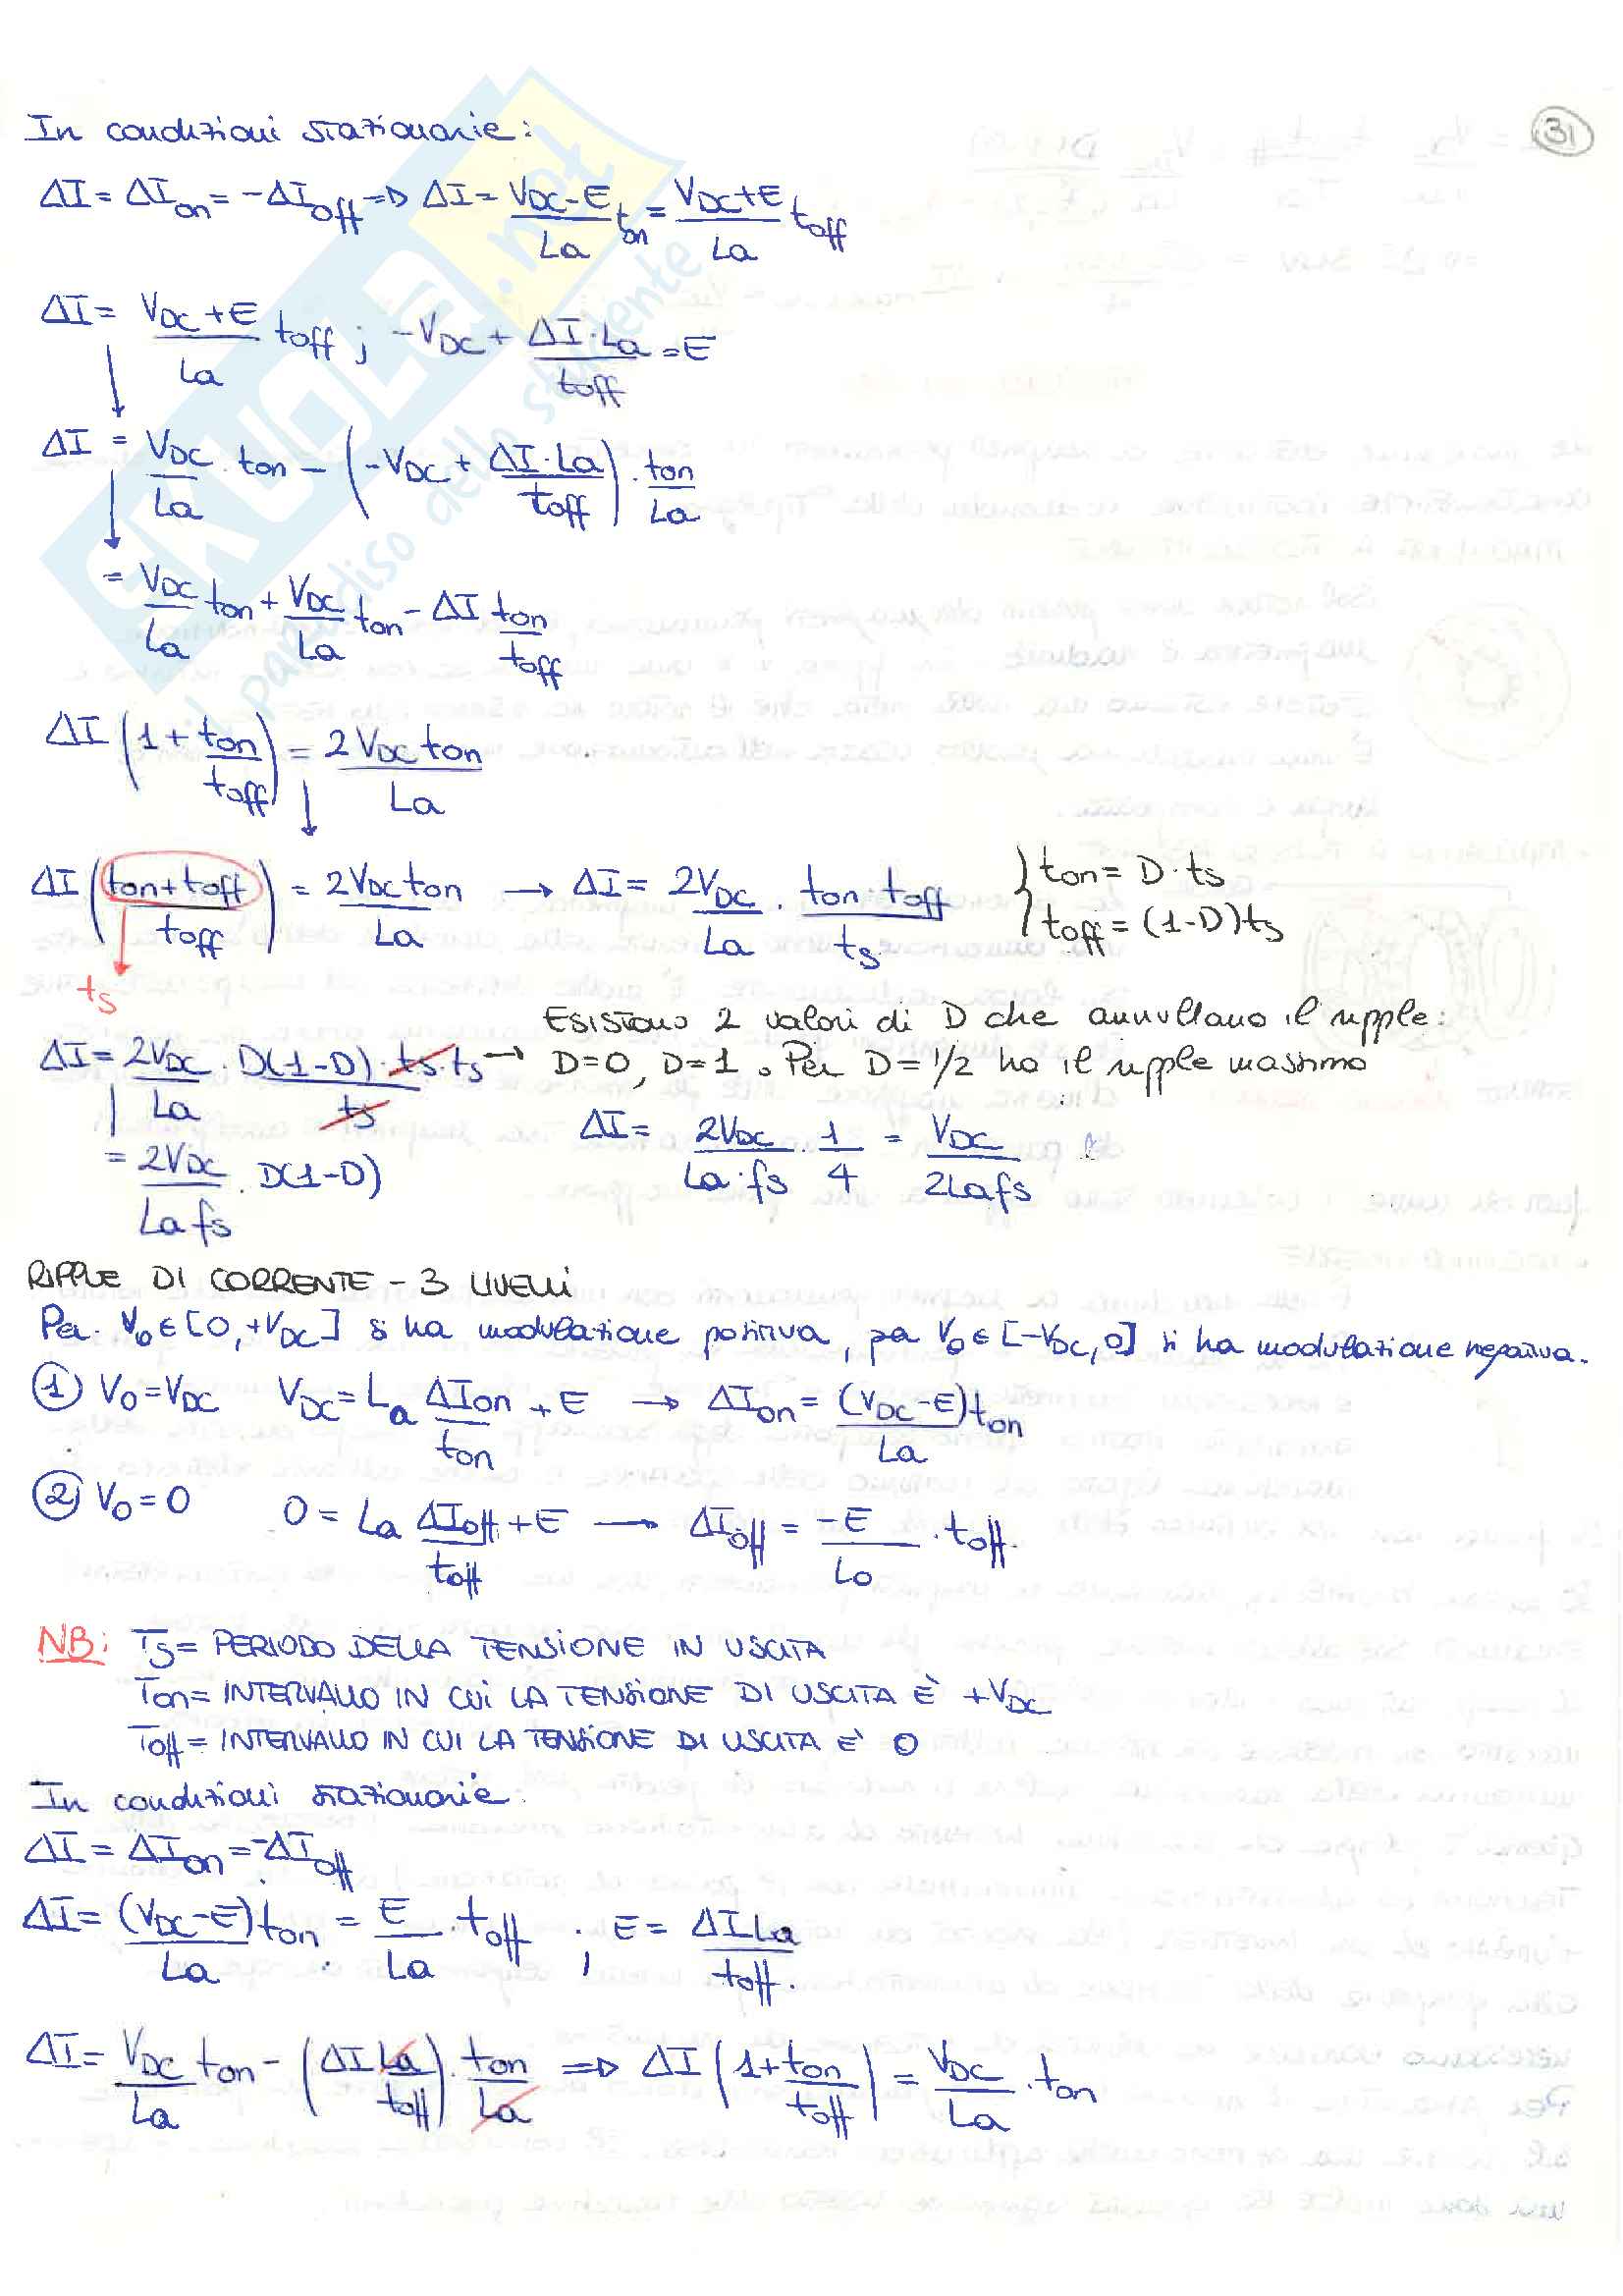 31
In condizioni stazionarie:
ΔI = ΔIon = -ΔIoff => ΔI = (VDC-E)/La ton = (VDC+E)/La toff
ΔI = (VDC+E)/La toff ; -VDC + (ΔI·La)/toff = E
ΔI = VDC/La · ton - (-VDC + (ΔI·La)/toff) · ton/La
= VDC/La ton + VDC/La ton - ΔI ton/toff
ΔI (1 + ton/toff) = 2VDC ton/La
ΔI ((ton+toff)/toff) = 2VDC ton/La → ΔI = 2VDC/La · (ton·toff)/ts
ton = D·ts
toff = (1-D)ts
ts
Esistono 2 valori di D che annullano il ripple:
ΔI = 2VDC/La · D(1-D)·ts·ts/ts → D=0, D=1. Per D=1/2 ho il ripple massimo
= 2VDC/(La fs) · D(1-D)
ΔI = 2VDC/(La·fs) · 1/4 = VDC/(2Lafs)
RIPPLE DI CORRENTE - 3 LIVELLI
Per. Vo∈[0,+VDC] si ha modulazione positiva, per Vo∈[-VDC,0] si ha modulazione negativa.
① Vo=VDC VDC = La ΔIon/ton + E → ΔIon = (VDC-E)ton/La
② Vo=0 0 = La ΔIoff/toff + E → ΔIoff = -E/La · toff.
NB: Ts = PERIODO DELLA TENSIONE IN USCITA
Ton = INTERVALLO IN CUI LA TENSIONE DI USCITA È +VDC
Toff = INTERVALLO IN CUI LA TENSIONE DI USCITA È 0
In condizioni stazionarie:
ΔI = ΔIon = -ΔIoff
ΔI = (VDC-E)ton/La = E/La · toff ; E = ΔILa/toff.
ΔI = VDC/La ton - (ΔILa/toff) · ton/La => ΔI (1 + ton/toff) = VDC/La · ton
SKUOLA.net
il paradiso dello studente